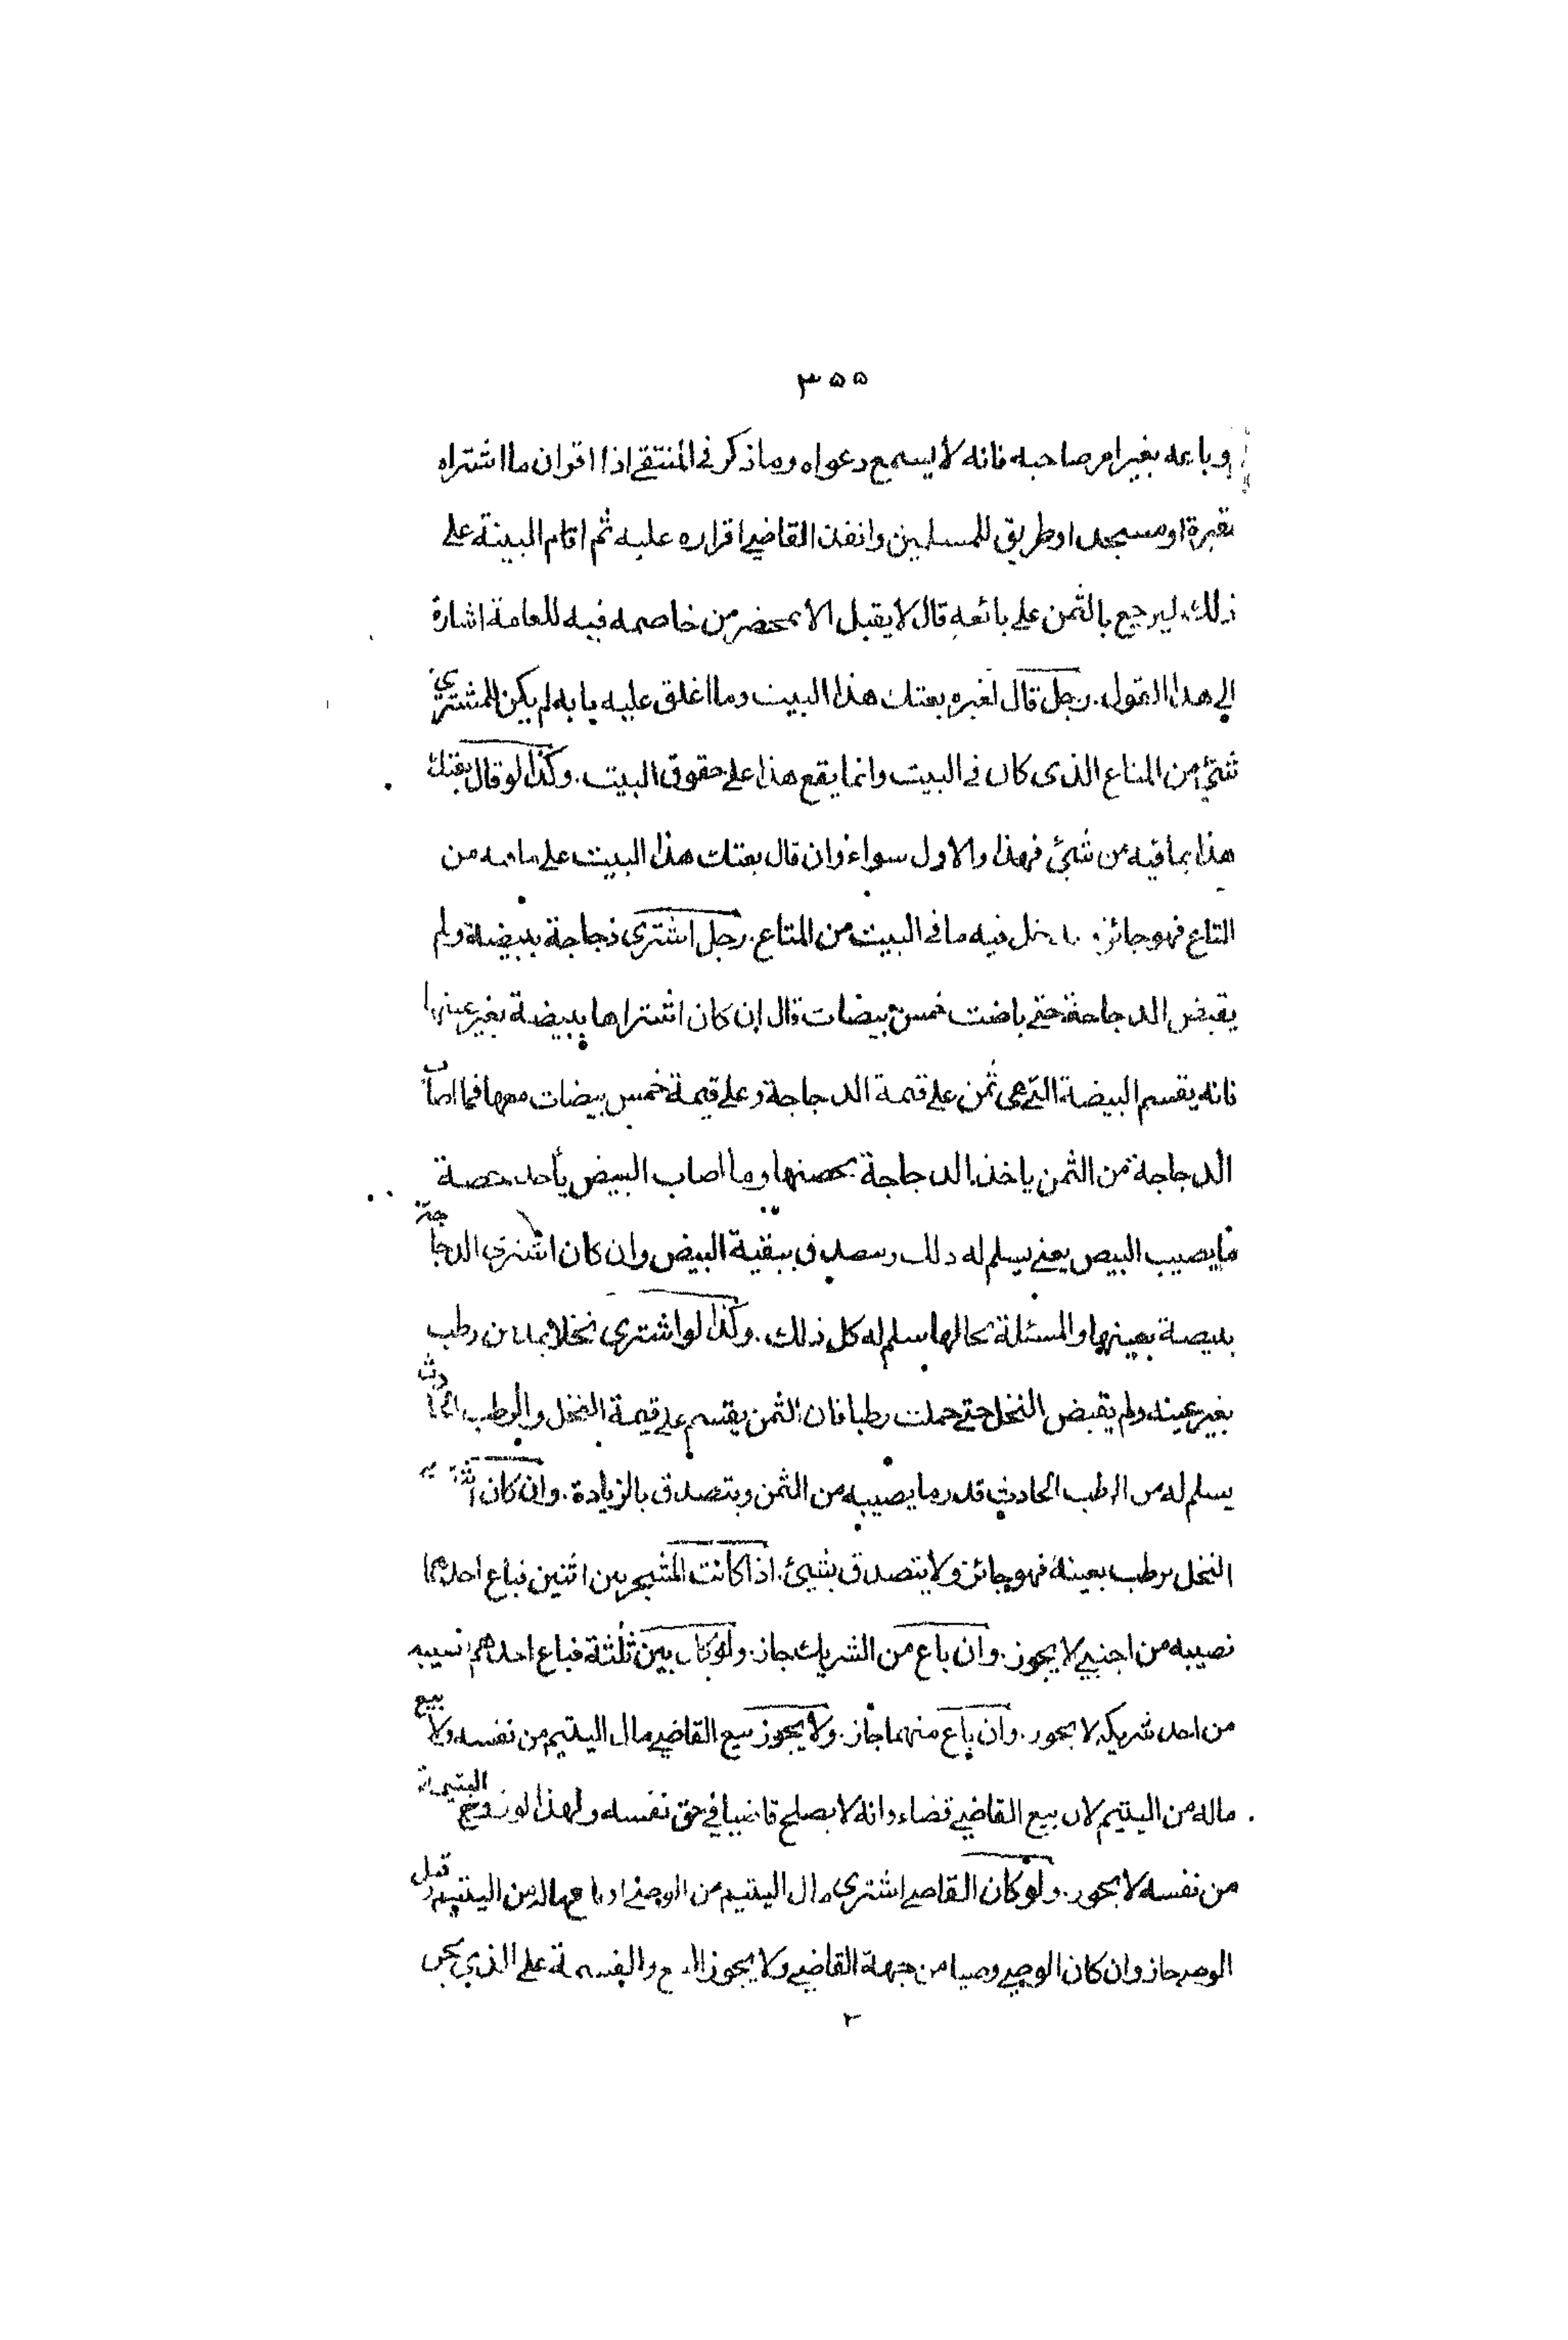 ٣٥٥
وباعه بغير امر صاحبه فانه لا يسمع دعواه وما ذكر في المنتقى اذا اقر ان ما اشتراه
مقبرة او مسجد او طريق للمسلمين وانفذ القاضي اقراره عليه ثم اقام البينة على
ذلك ليرجع بالثمن على بائعه قال لا يقبل الا بمحضر من خاصمه فيه للعامة اشارة
الى هذا القول. رجل قال لغيره بعتك هذا البيت وما اغلق عليه بابه لم يكن للمشتري
شئ من المتاع الذى كان في البيت وانما يقع هذا على حقوق البيت. وكذا لو قال بعتك
هذا بما فيه من شئ فهذا والاول سواء وان قال بعتك هذا البيت على ما فيه من
المتاع فهو جائز و يدخل فيه ما في البيت من المتاع. رجل اشترى دجاجة ببيضة ولم
يقبض الدجاجة حتى باضت خمس بيضات قال ان كان اشتراها ببيضة بغير عينها
فانه يقسم البيضة التي هى ثمن على قيمة الدجاجة وعلى قيمة خمس بيضات معها فما اصاب
الدجاجة من الثمن ياخذ الدجاجة بحصتها وما اصاب البيض يأخذ حصة
ما يصيب البيض يعني يسلم له ذلك ويتصدق ببقية البيض وان كان اشترى الدجاجة
ببيضة بعينها والمسئلة بحالها سلم له كل ذلك. وكذا لو اشترى نخلا من رطب
بغير عينه ولم يقبض النخل حتى حملت رطبا فان الثمن يقسم على قيمة النخل والرطب الحادث
يسلم له من الرطب الحادث قدر ما يصيبه من الثمن ويتصدق بالزيادة. وان كان
النخل برطب بعينه فهو جائز ولا يتصدق بشيئ. اذا كانت الشجر بين اثنين فباع احدهما
نصيبه من اجنبي لا يجوز. وان باع من الشريك جاز. ولو كان بين ثلثة فباع احدهم نصيبه
من احد شريكيه لا يجوز. وان باع منهما جاز. ولا يجوز بيع القاضي مال اليتيم من نفسه ولا بيع
ماله من اليتيم لان بيع القاضي قضاء وانه لا يصلح قاضيا في حق نفسه ولهذا لو زوج اليتيمة
من نفسه لا يجوز. ولو كان القاضي اشترى مال اليتيم من الوصي او باع ماله من اليتيم وقبل
الوصي جاز وان كان الوصي وصيا من جهة القاضي ولا يجوز البيع والقسمة على الذي يجن
٢